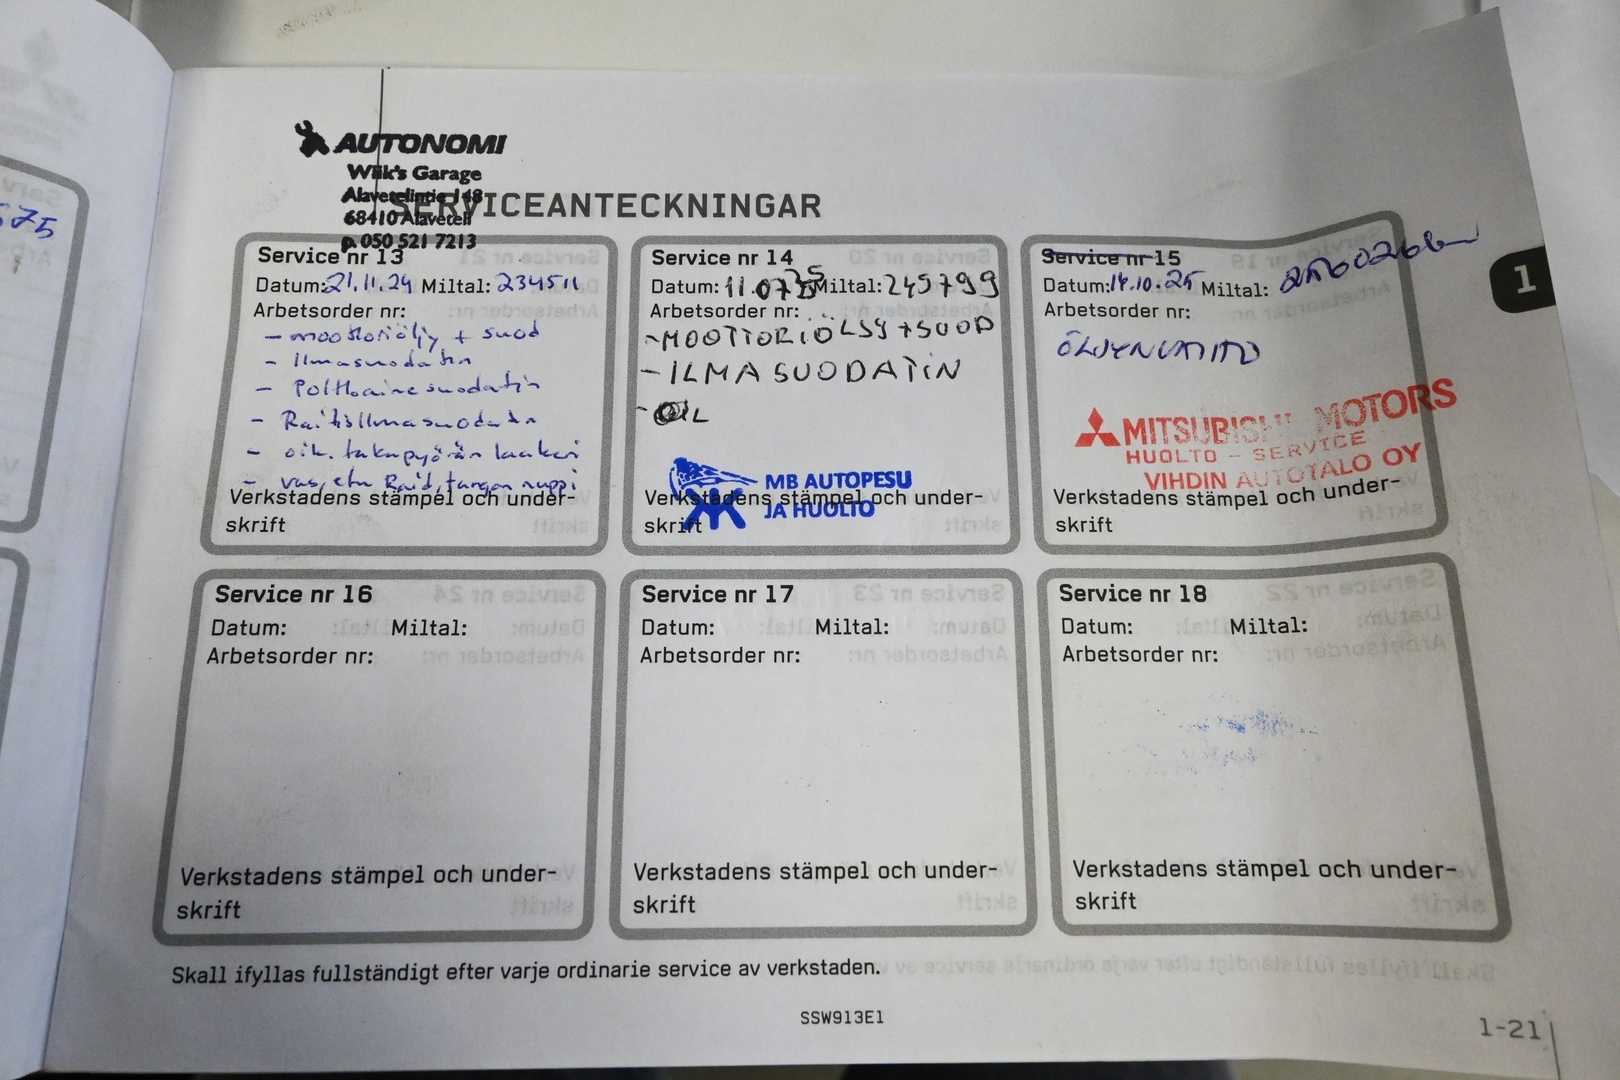 AUTONOMI
Wiik's Garage
Alavetelintie 148
68410 Alaveteli
p. 050 521 7213
SERVICEANTECKNINGAR
Service nr 13
Datum: 21.11.24 Miltal: 234511
Arbetsorder nr:
- moottoriöljy + suod
- Ilmasuodatin
- Polttoainesuodatin
- Raitisilmasuodatin
- oik. takapyörän laakeri
- vas, etu Raid, tangon nuppi
Verkstadens stämpel och under-
skrift
Service nr 14
Datum: 11.07.25 Miltal: 245799
Arbetsorder nr:
- MOOTTORIÖLJY + SUOD
- ILMASUODATIN
MB AUTOPESU
JA HUOLTO
Verkstadens stämpel och under-
skrift
Service nr 15
Datum: 14.10.25 Miltal:
Arbetsorder nr:
ÖLJYNVAIHTO
MITSUBISHI MOTORS
HUOLTO - SERVICE
VIHDIN AUTOTALO OY
Verkstadens stämpel och under-
skrift
1
Service nr 16
Datum: Miltal:
Arbetsorder nr:
Verkstadens stämpel och under-
skrift
Service nr 17
Datum: Miltal:
Arbetsorder nr:
Verkstadens stämpel och under-
skrift
Service nr 18
Datum: Miltal:
Arbetsorder nr:
Verkstadens stämpel och under-
skrift
Skall ifyllas fullständigt efter varje ordinarie service av verkstaden.
SSW913E1
1-21